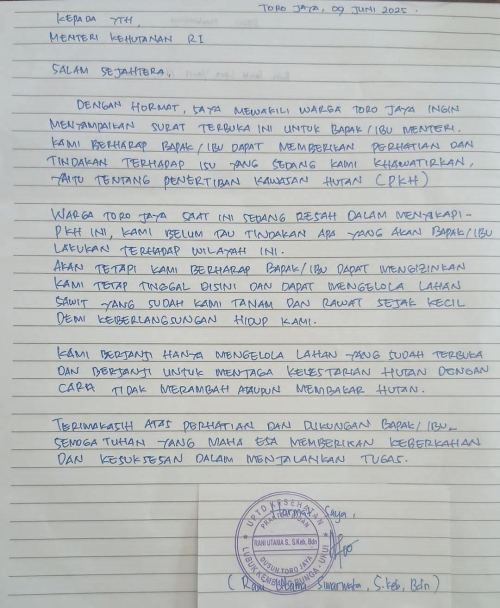 TORO JAYA, 09 JUNI 2025.
KEPADA YTH,
MENTERI KEHUTANAN RI
SALAM SEJAHTERA,
DENGAN HORMAT, SAYA MEWAKILI WARGA TORO JAYA INGIN
MENYAMPAIKAN SURAT TERBUKA INI UNTUK BAPAK/IBU MENTERI.
KAMI BERHARAP BAPAK/IBU DAPAT MEMBERIKAN PERHATIAN DAN
TINDAKAN TERHADAP ISU YANG SEDANG KAMI KHAWATIRKAN,
YAITU TENTANG PENERTIBAN KAWASAN HUTAN (PKH)
WARGA TORO JAYA SAAT INI SEDANG RESAH DALAM MENYIKAPI-
PKH INI, KAMI BELUM TAU TINDAKAN APA YANG AKAN BAPAK/IBU
LAKUKAN TERHADAP WILAYAH INI.
AKAN TETAPI KAMI BERHARAP BAPAK/IBU DAPAT MENGIZINKAN
KAMI TETAP TINGGAL DISINI DAN DAPAT MENGELOLA LAHAN
SAWIT YANG SUDAH KAMI TANAM DAN RAWAT SEJAK KECIL
DEMI KEBERLANGSUNGAN HIDUP KAMI.
KAMI BERJANJI HANYA MENGELOLA LAHAN YANG SUDAH TERBUKA
DAN BERJANJI UNTUK MENJAGA KELESTARIAN HUTAN DENGAN
CARA TIDAK MERAMBAH ATAUPUN MEMBAKAR HUTAN.
TERIMAKASIH ATAS PERHATIAN DAN DUKUNGAN BAPAK/IBU.
SEMOGA TUHAN YANG MAHA ESA MEMBERIKAN KEBERKAHAN
DAN KESUKSESAN DALAM MENJALANKAN TUGAS.
Hormat Saya,
UPTD KESEHATAN
RANI UTAMA S., S.Keb, Bdn
DUSUN TORO JAYA
LUBUK KEMBANG BUNGA - UKUI
(Rani Utama S, S.Keb, Bdn)